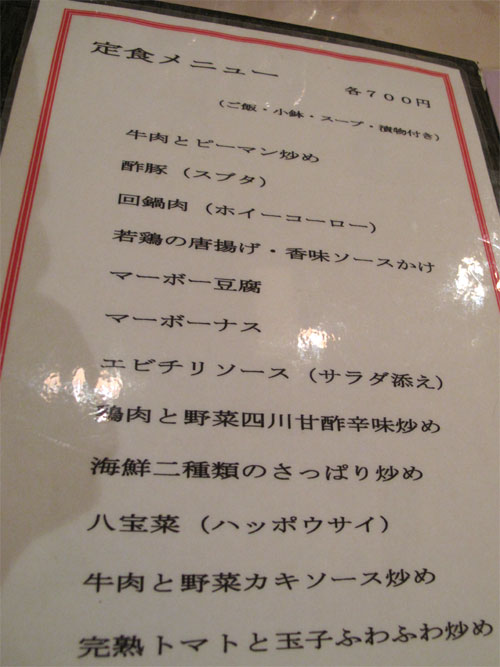 定食メニュー
各７００円
(ご飯・小鉢・スープ・漬物付き)
牛肉とピーマン炒め
酢豚 (スブタ)
回鍋肉 (ホイーコーロー)
若鶏の唐揚げ・香味ソースかけ
マーボー豆腐
マーボーナス
エビチリソース (サラダ添え)
鶏肉と野菜四川甘酢辛味炒め
海鮮二種類のさっぱり炒め
八宝菜 (ハッポウサイ)
牛肉と野菜カキソース炒め
完熟トマトと玉子ふわふわ炒め